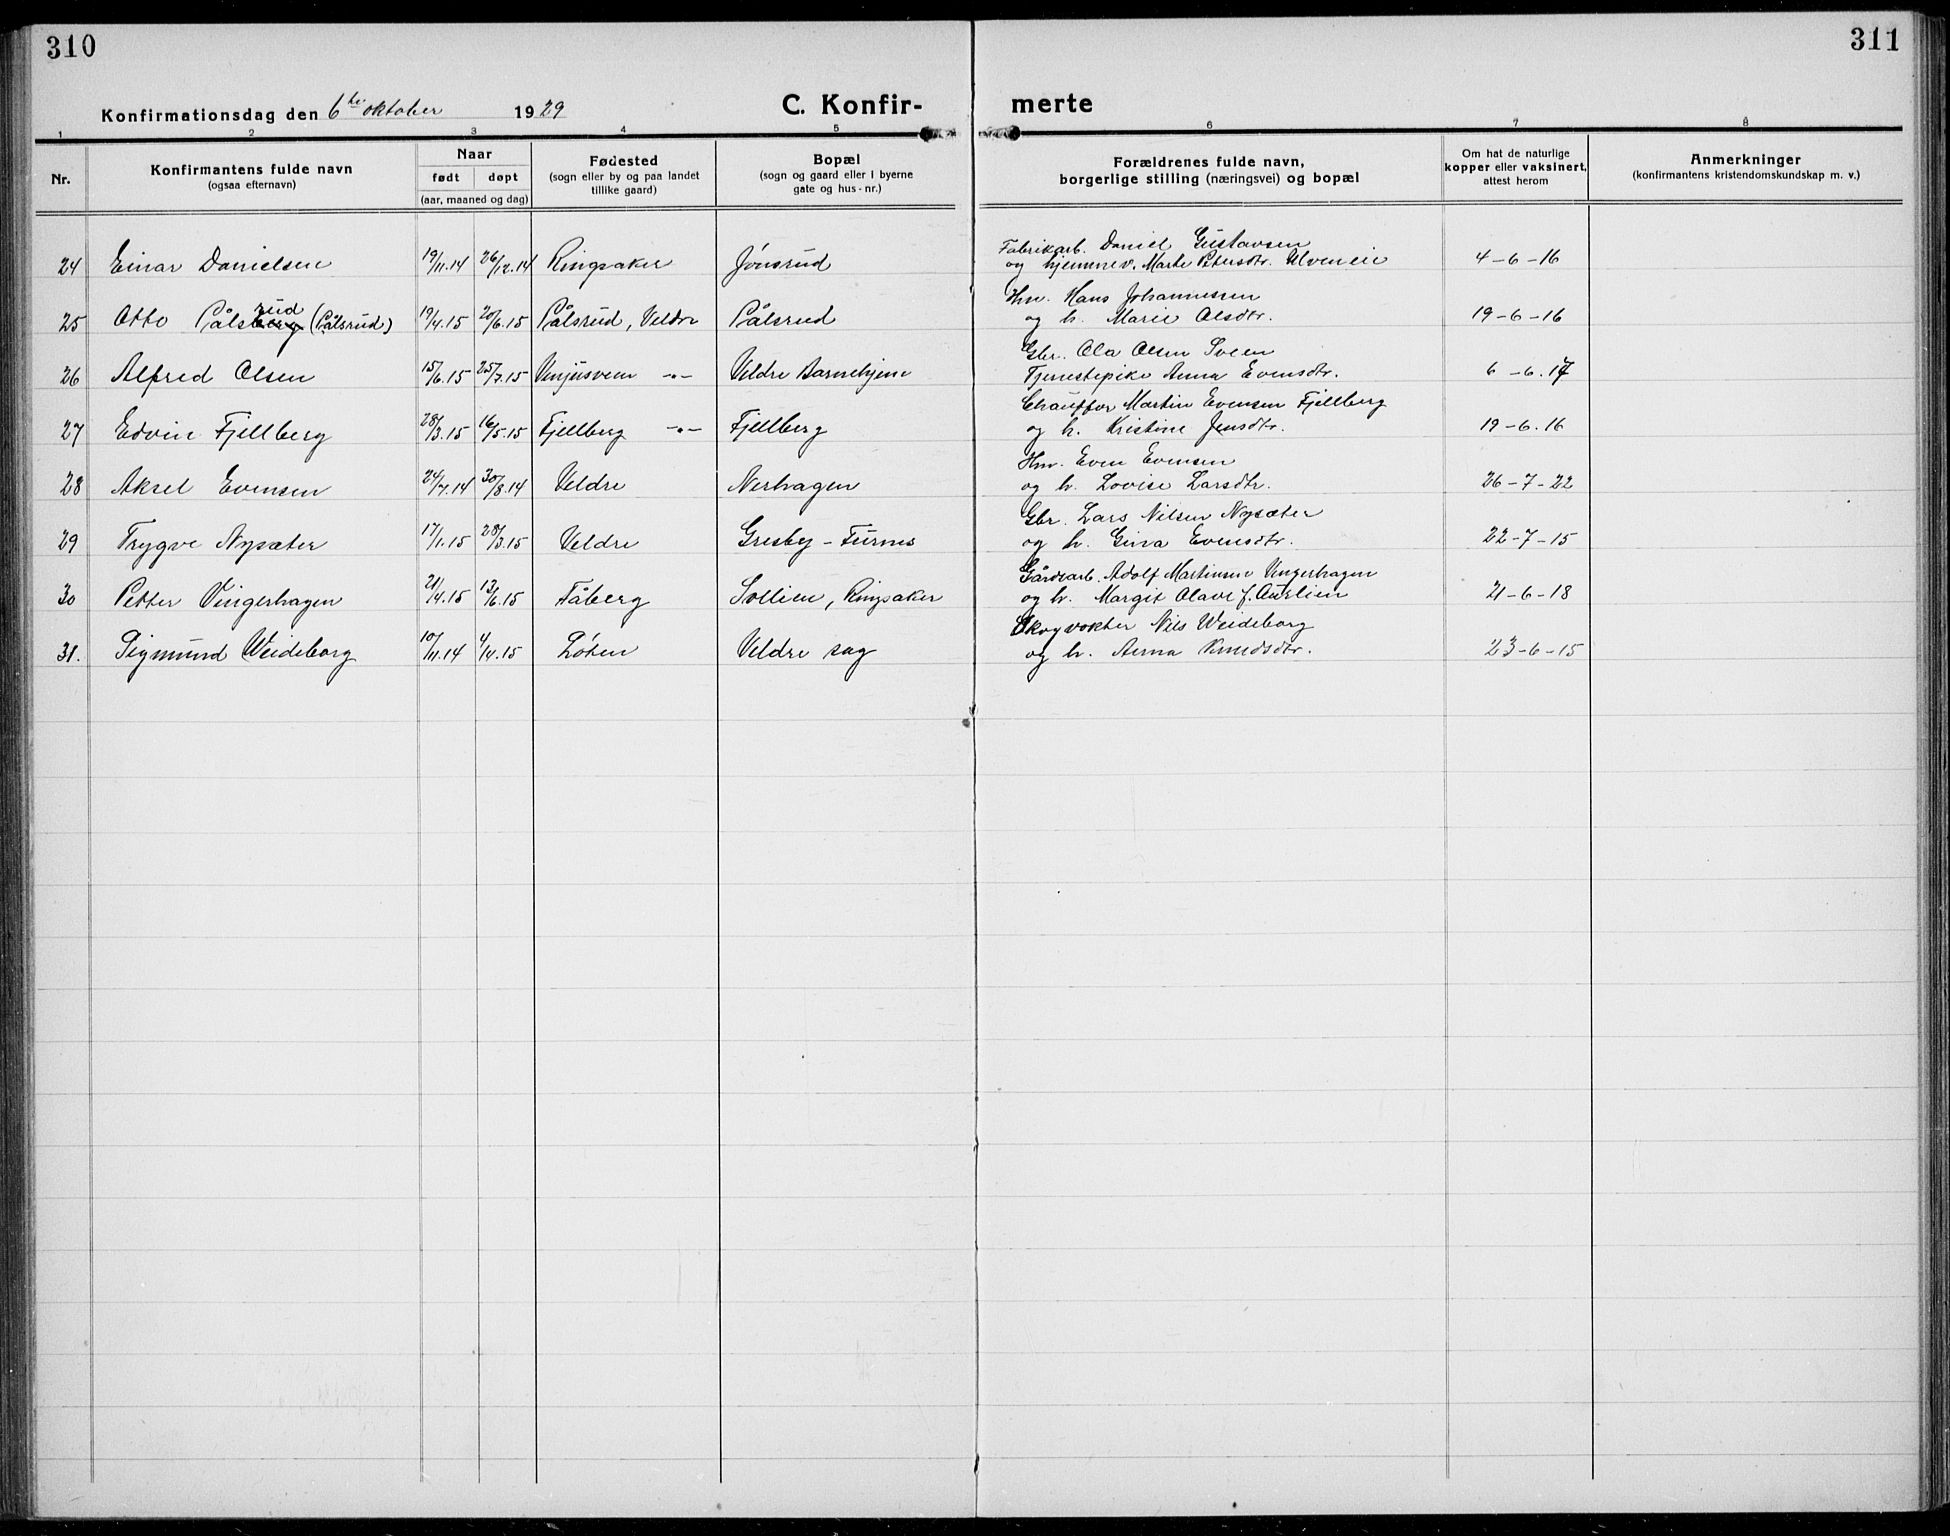 310
311
Konfirmationsdag den 6te oktober 1929
C. Konfir- merte
1 2 3 4 5 6 7 8
Nr.
Konfirmantens fulde navn
(ogsaa efternavn)
Naar
født døpt
(aar, maaned og dag)
Fødested
(sogn eller by og paa landet
tillike gaard)
Bopæl
(sogn og gaard eller i byerne
gate og hus-nr.)
Forældrenes fulde navn,
borgerlige stilling (næringsvei) og bopæl
Om hat de naturlige
kopper eller vaksinert,
attest herom
Anmerkninger
(konfirmantens kristendomskundskap m. v.)
Fabrikarb. Daniel Gustavsen
24 Einar Danielsen 19/11.14 26/12.14 Ringsaker Jónsrud og hjemmev. Marte Petersdtr. Ulveneie 4-6-16
Hm. Hans Johannessen
25 Otto Pålsberg rud (Pålsrud) 19/4.15 20/6.15 Pålsrud, Veldre Pålsrud og h. Marie Olsdtr. 19-6-16
Gbr. Ola Olsen Sveen
26 Alfred Olsen 15/6.15 25/7.15 Vinjusveen -"- Veldre Barnehjem Tjenestepike Anna Evensdtr. 6-6.17
Chauffør Martin Evensen Fjellberg
27 Edvin Fjellberg 28/3.15 16/5.15 Fjellberg -"- Fjellberg og h. Kristine Jensdtr. 19-6.16
Hm. Even Evensen
28 Aksel Evensen 24/7.14 30/8.14 Veldre Nerhagen og h. Lovise Larsdtr. 26-7-22
Gbr. Lars Nilsen Nysæter
29 Trygve Nysæter 17/1.15 28/3.15 Veldre Gresby - Furnes og h. Gina Evensdtr. 22-7-15
Gårdsarb. Adolf Martinsen Vingerhagen
30 Petter Vingerhagen 21/4.15 13/6.15 Fåberg Sollien, Ringsaker og h. Margit Olave f. Aurlien 21-6-18
Skogvokter Nils Weideborg
31. Sigmund Weideborg 10/11.14 4/4.15 Løten Veldre sag og h. Anna Knudsdtr. 23-6-15